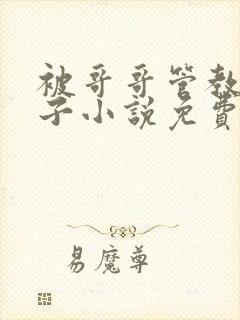 被哥哥管教
子小說免費
易魔尊